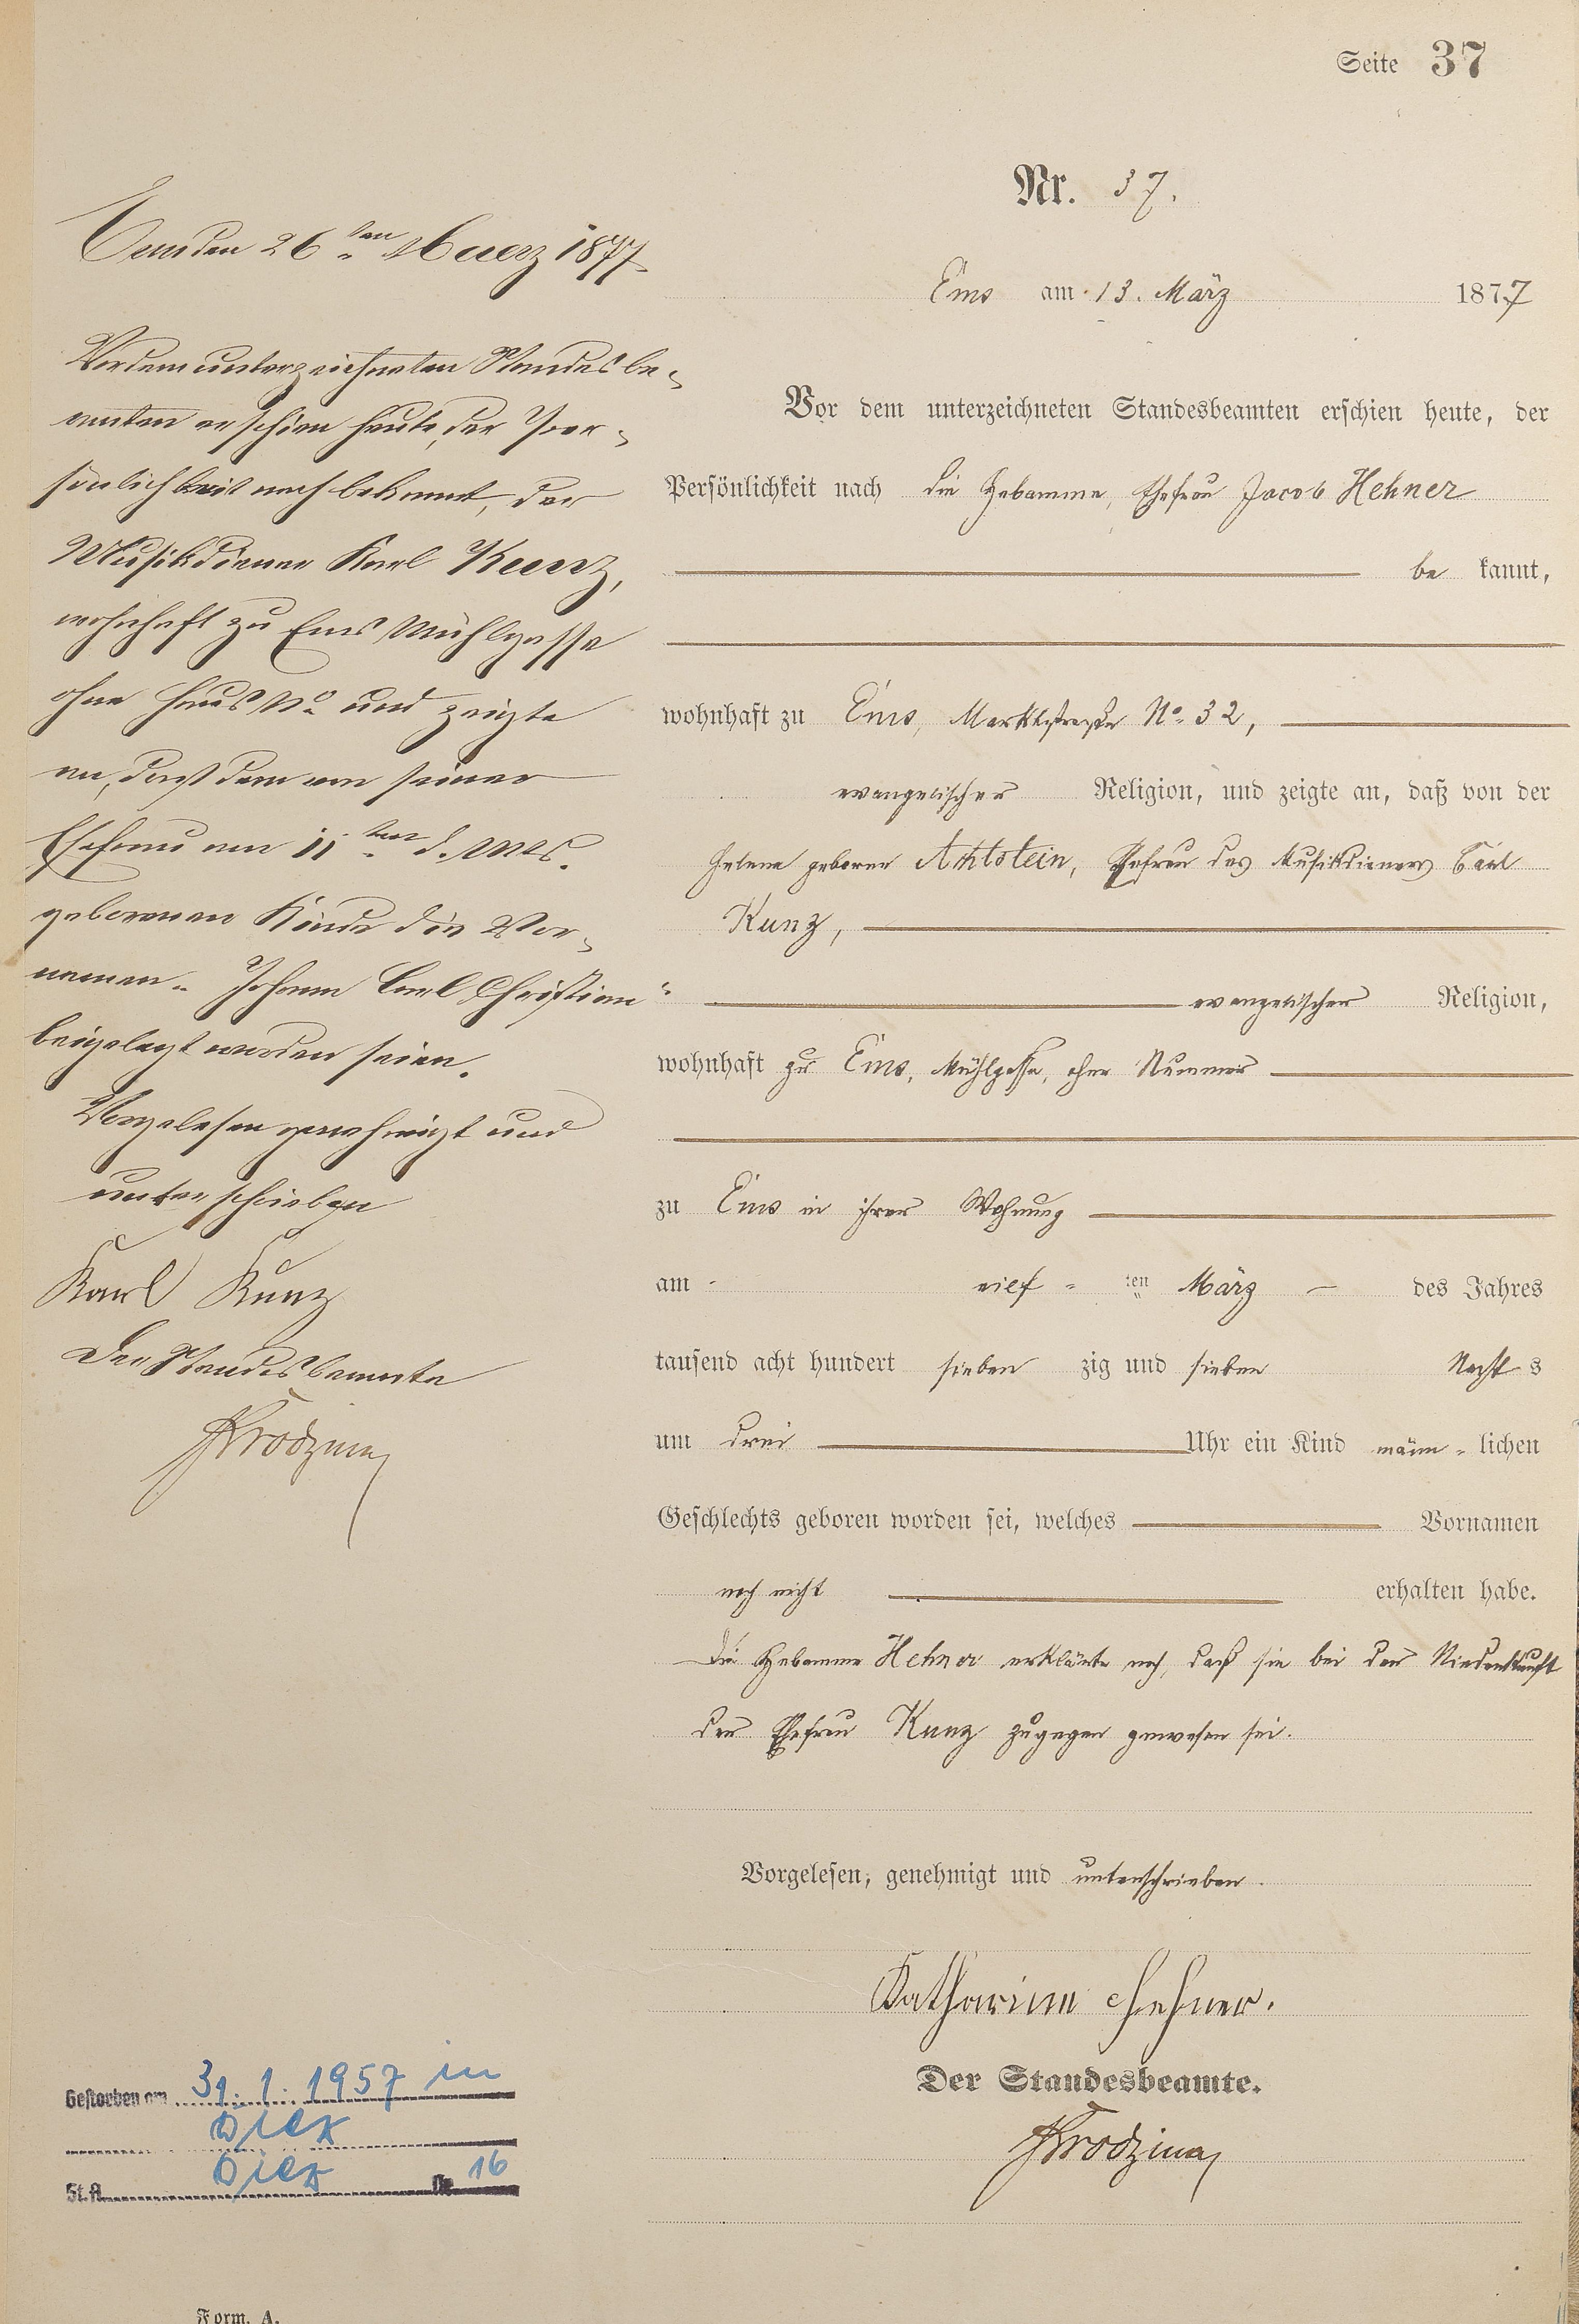 Seite 37
Nr. 37.
Ems am 13. März 1877
Vor dem unterzeichneten Standesbeamten erschien heute, der
Persönlichkeit nach die Hebamme, Ehefrau Jacob Hehner
be kannt,
wohnhaft zu Ems, Marktstraße No. 32,
evangelischer Religion, und zeigte an, daß von der
Helene geborne Achtstein, Ehefrau des Musikdieners Carl
Kunz,
evangelischer Religion,
wohnhaft zu Ems, Mühlgasse, ohne Nummer
zu Ems in ihrer Wohnung
am eilf ten März des Jahres
tausend acht hundert sieben zig und sieben Nacht s
um drei Uhr ein Kind männ - lichen
Geschlechts geboren worden sei, welches Vornamen
noch nicht erhalten habe.
Die Hebamme Hehner erklärte noch, daß sie bei der Niederkunft
der Ehefrau Kunz zugegen gewesen sei.
Vorgelesen, genehmigt und unterschrieben.
Katharina Hehner.
Der Standesbeamte.
Ems den 26ten Maerz 1877
Vor dem unterzeichneten Standesbe-
amten erschien heute, der Per-
sönlichkeit nach bekannt, der
Musikdiener Karl Kunz,
wohnhaft zu Ems Mühlgasse
ohne Haus No. und zeigte
an, daß dem von seiner
Ehefrau am 11ten d. Mts.
geborenen Kinde die Vor-
namen "Johann Carl Christian"
beigelegt worden seien.
Vorgelesen genehmigt und
unterschrieben
Karl Kunz
Der Standesbeamte
Gestorben am 31.1.1957 in
Diez
St.A. Diez Nr. 16
Form. A.